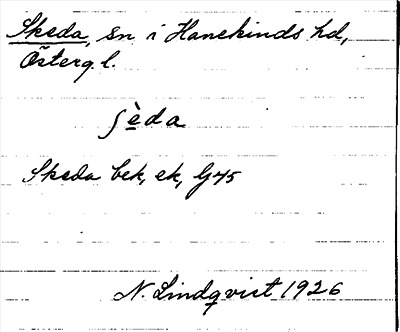 Skeda, sn i Hanekinds hd,
Österg.l.
ʃèda
Skeda bek, ek, G45
N. Lindqvist 1926